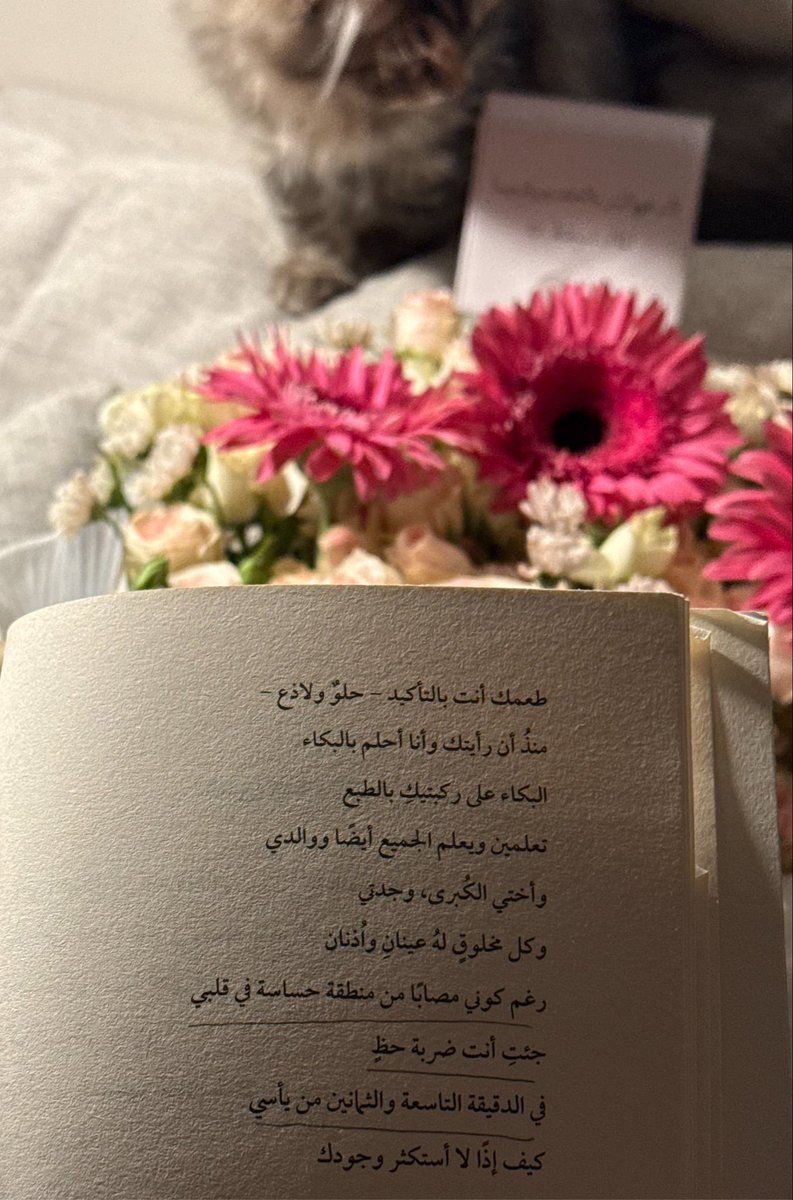 طعمك أنت بالتأكيد – حلوٌ ولاذع –
منذُ أن رأيتك وأنا أحلم بالبكاء
البكاء على ركبتيكِ بالطبع
تعلمين ويعلم الجميع أيضًا ووالدي
وأختي الكُبرى، وجدتي
وكل مخلوقٍ لهُ عينانِ واُذنان
رغم كوني مصابًا من منطقة حساسة في قلبي
جئتِ أنت ضربة حظٍ
في الدقيقة التاسعة والثمانين من يأسي
كيف إذًا لا أستكثر وجودك